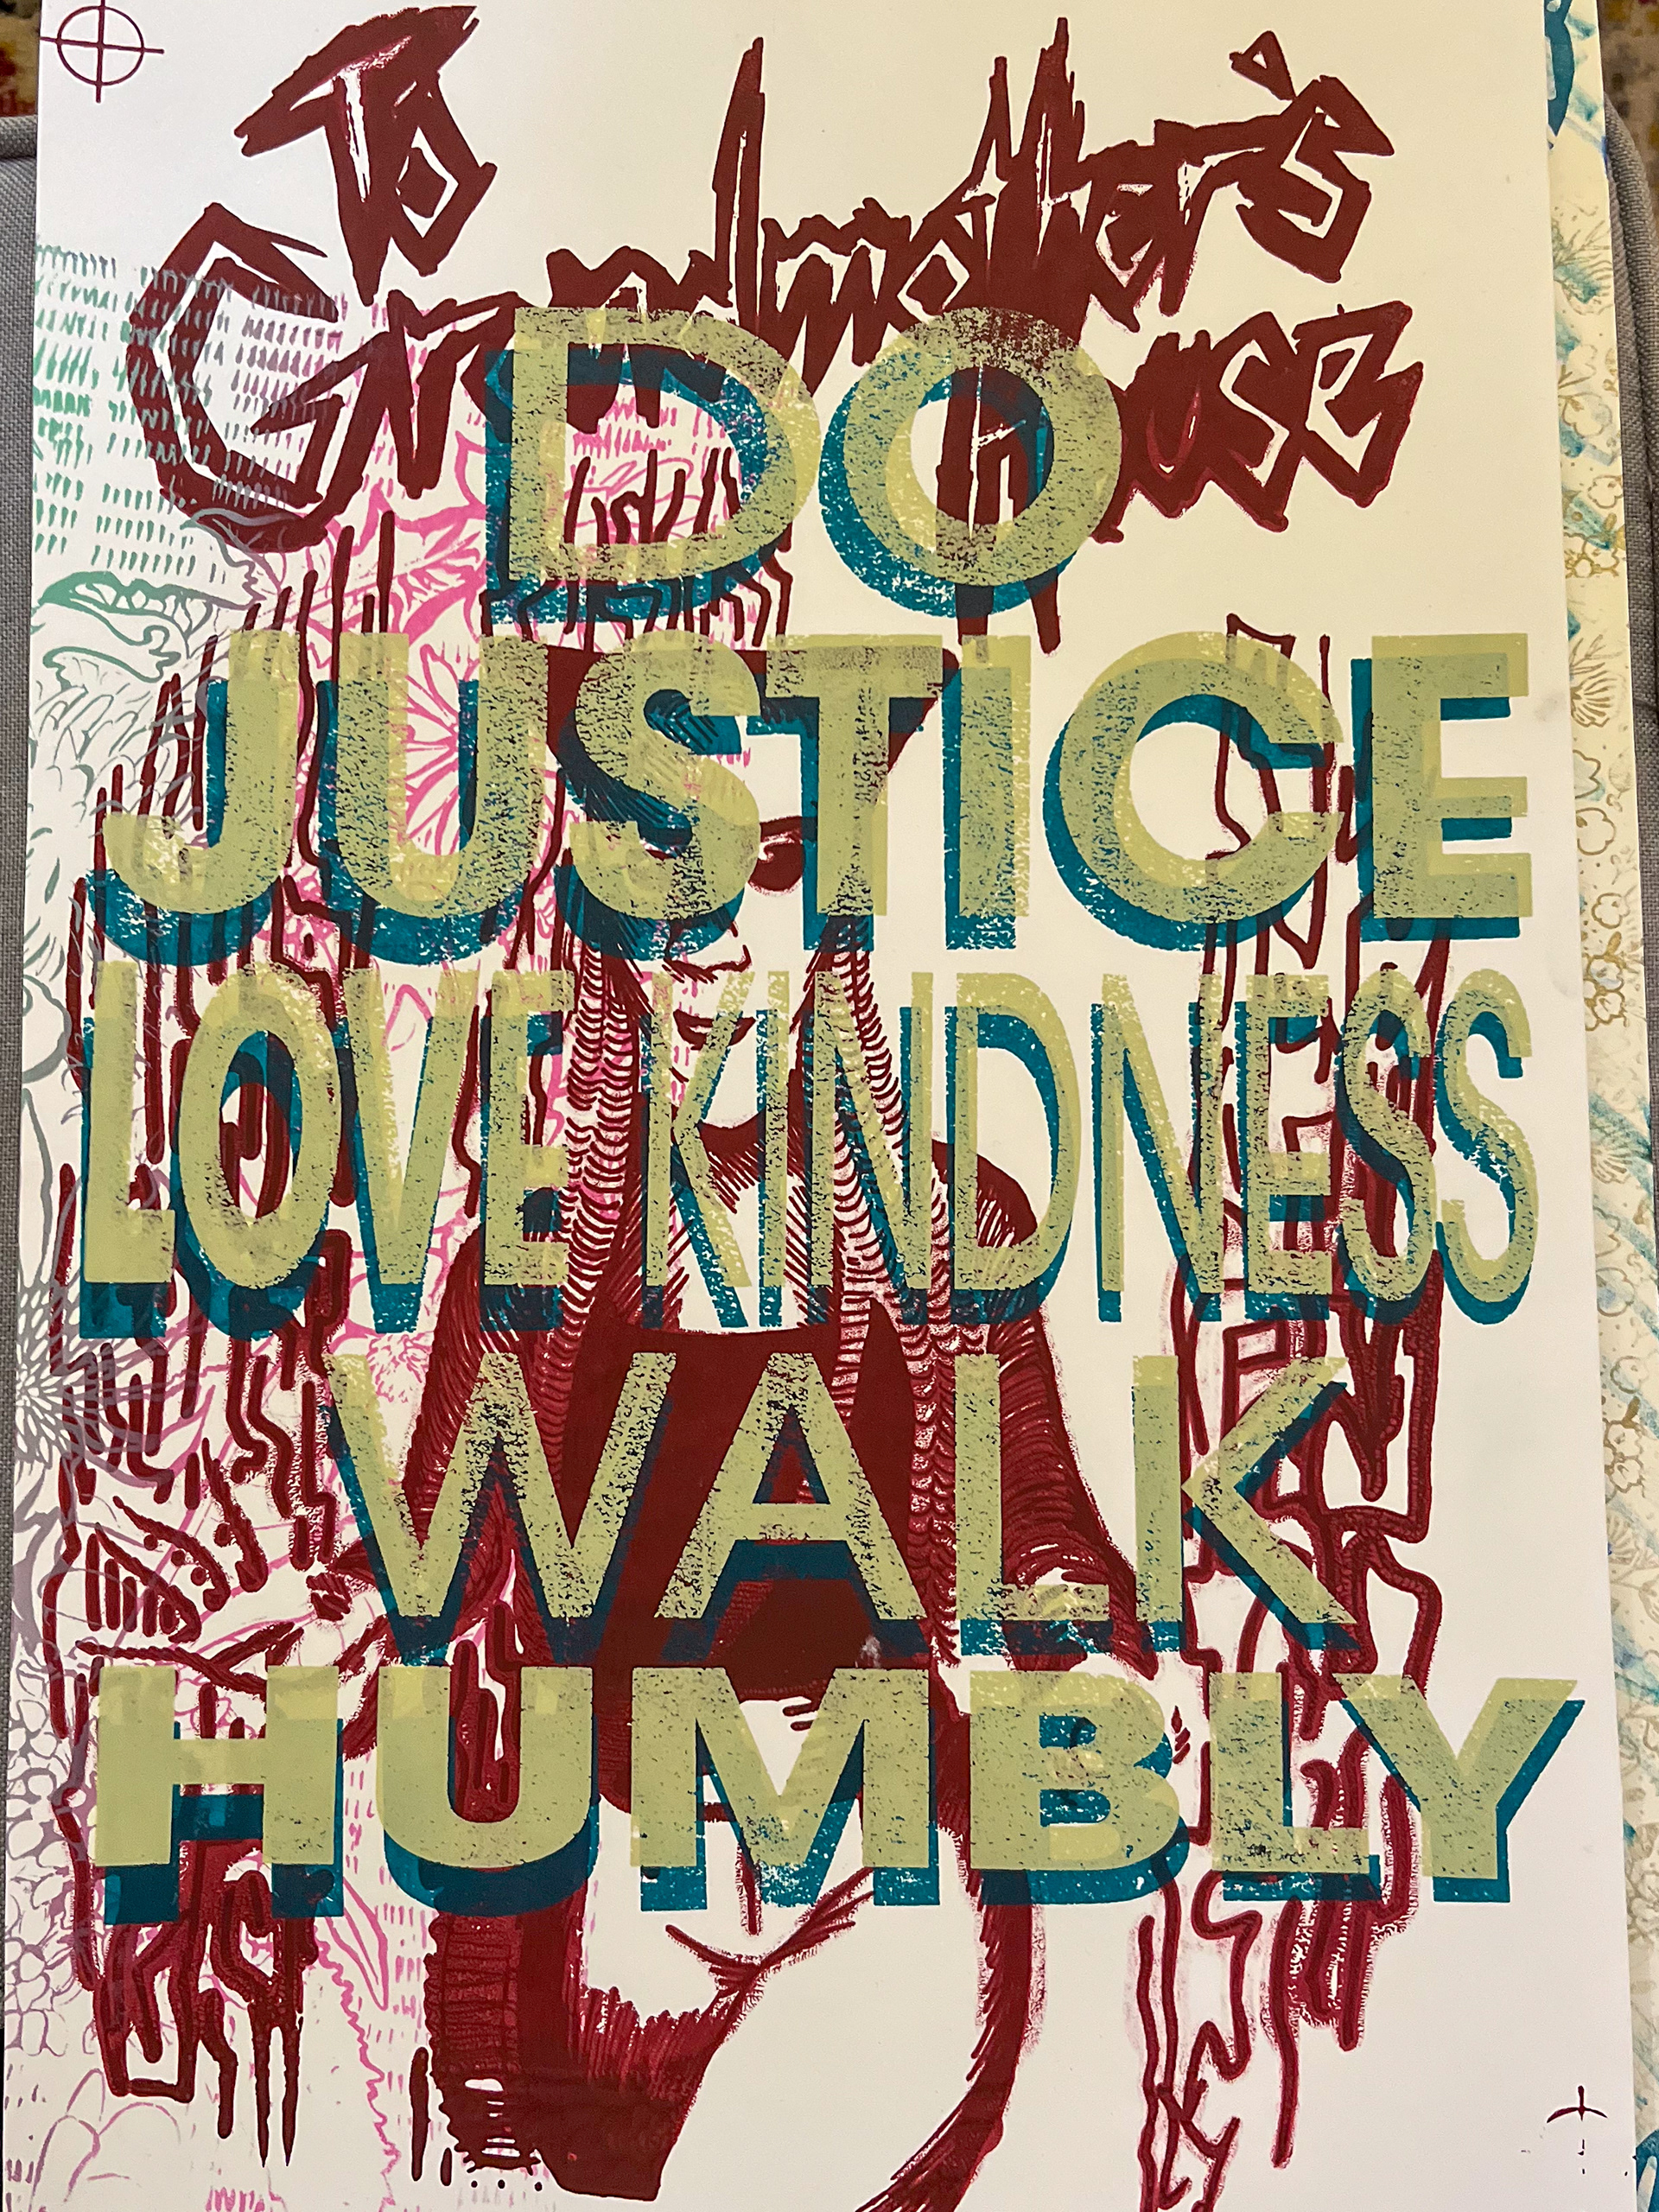 To
Grandmother's
House
DO
JUSTICE
LOVE KINDNESS
WALK
HUMBLY